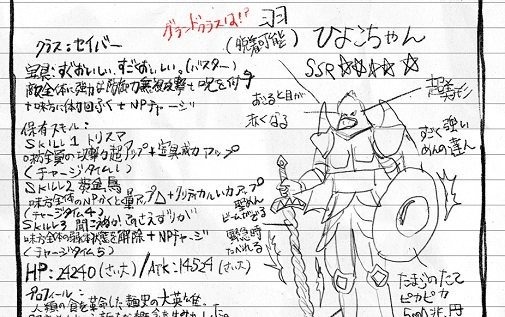 グランドクラスは!?
羽
(脱着可能)
ひよこちゃん
SSR ☆☆☆☆☆
クラス:セイバー
宝具:すごおいしい、すごおいしい。(バスター)
敵全体に強力な防御力無視攻撃+呪を付与
+味方に体力回ふく+NPチャージ
保有スキル:
SKILL1 トリスマ
味方全員の攻撃力超アップ+宝具威力アップ
(チャージタイム1)
SKILL2 黄金鳥
味方全体のNPかくとく量アップ+クリティカルいカアップ
(チャージタイム4)
SKILL3
味方全体の弱体状態を解除+NPチャージ
(チャージタイム5)
HP:24240(さい大)/ATK:14524(さい大)
プロフィール:
人類の食を革命した麺史の大英雄。
おこると目が
赤くなる
超美形
すごく強い
めんの達人
聖めん
ビームがでる
緊急時
たべれる
たまごのたて
ピカピカ
5000兆円